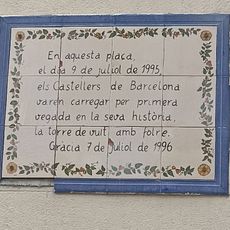 En aquesta plaça,
el dia 9 de juliol de 1995,
els Castellers de Barcelona
varen carregar per primera
vegada en la seva història,
la torre de vuit amb folre.
Gràcia 7 de Juliol de 1996